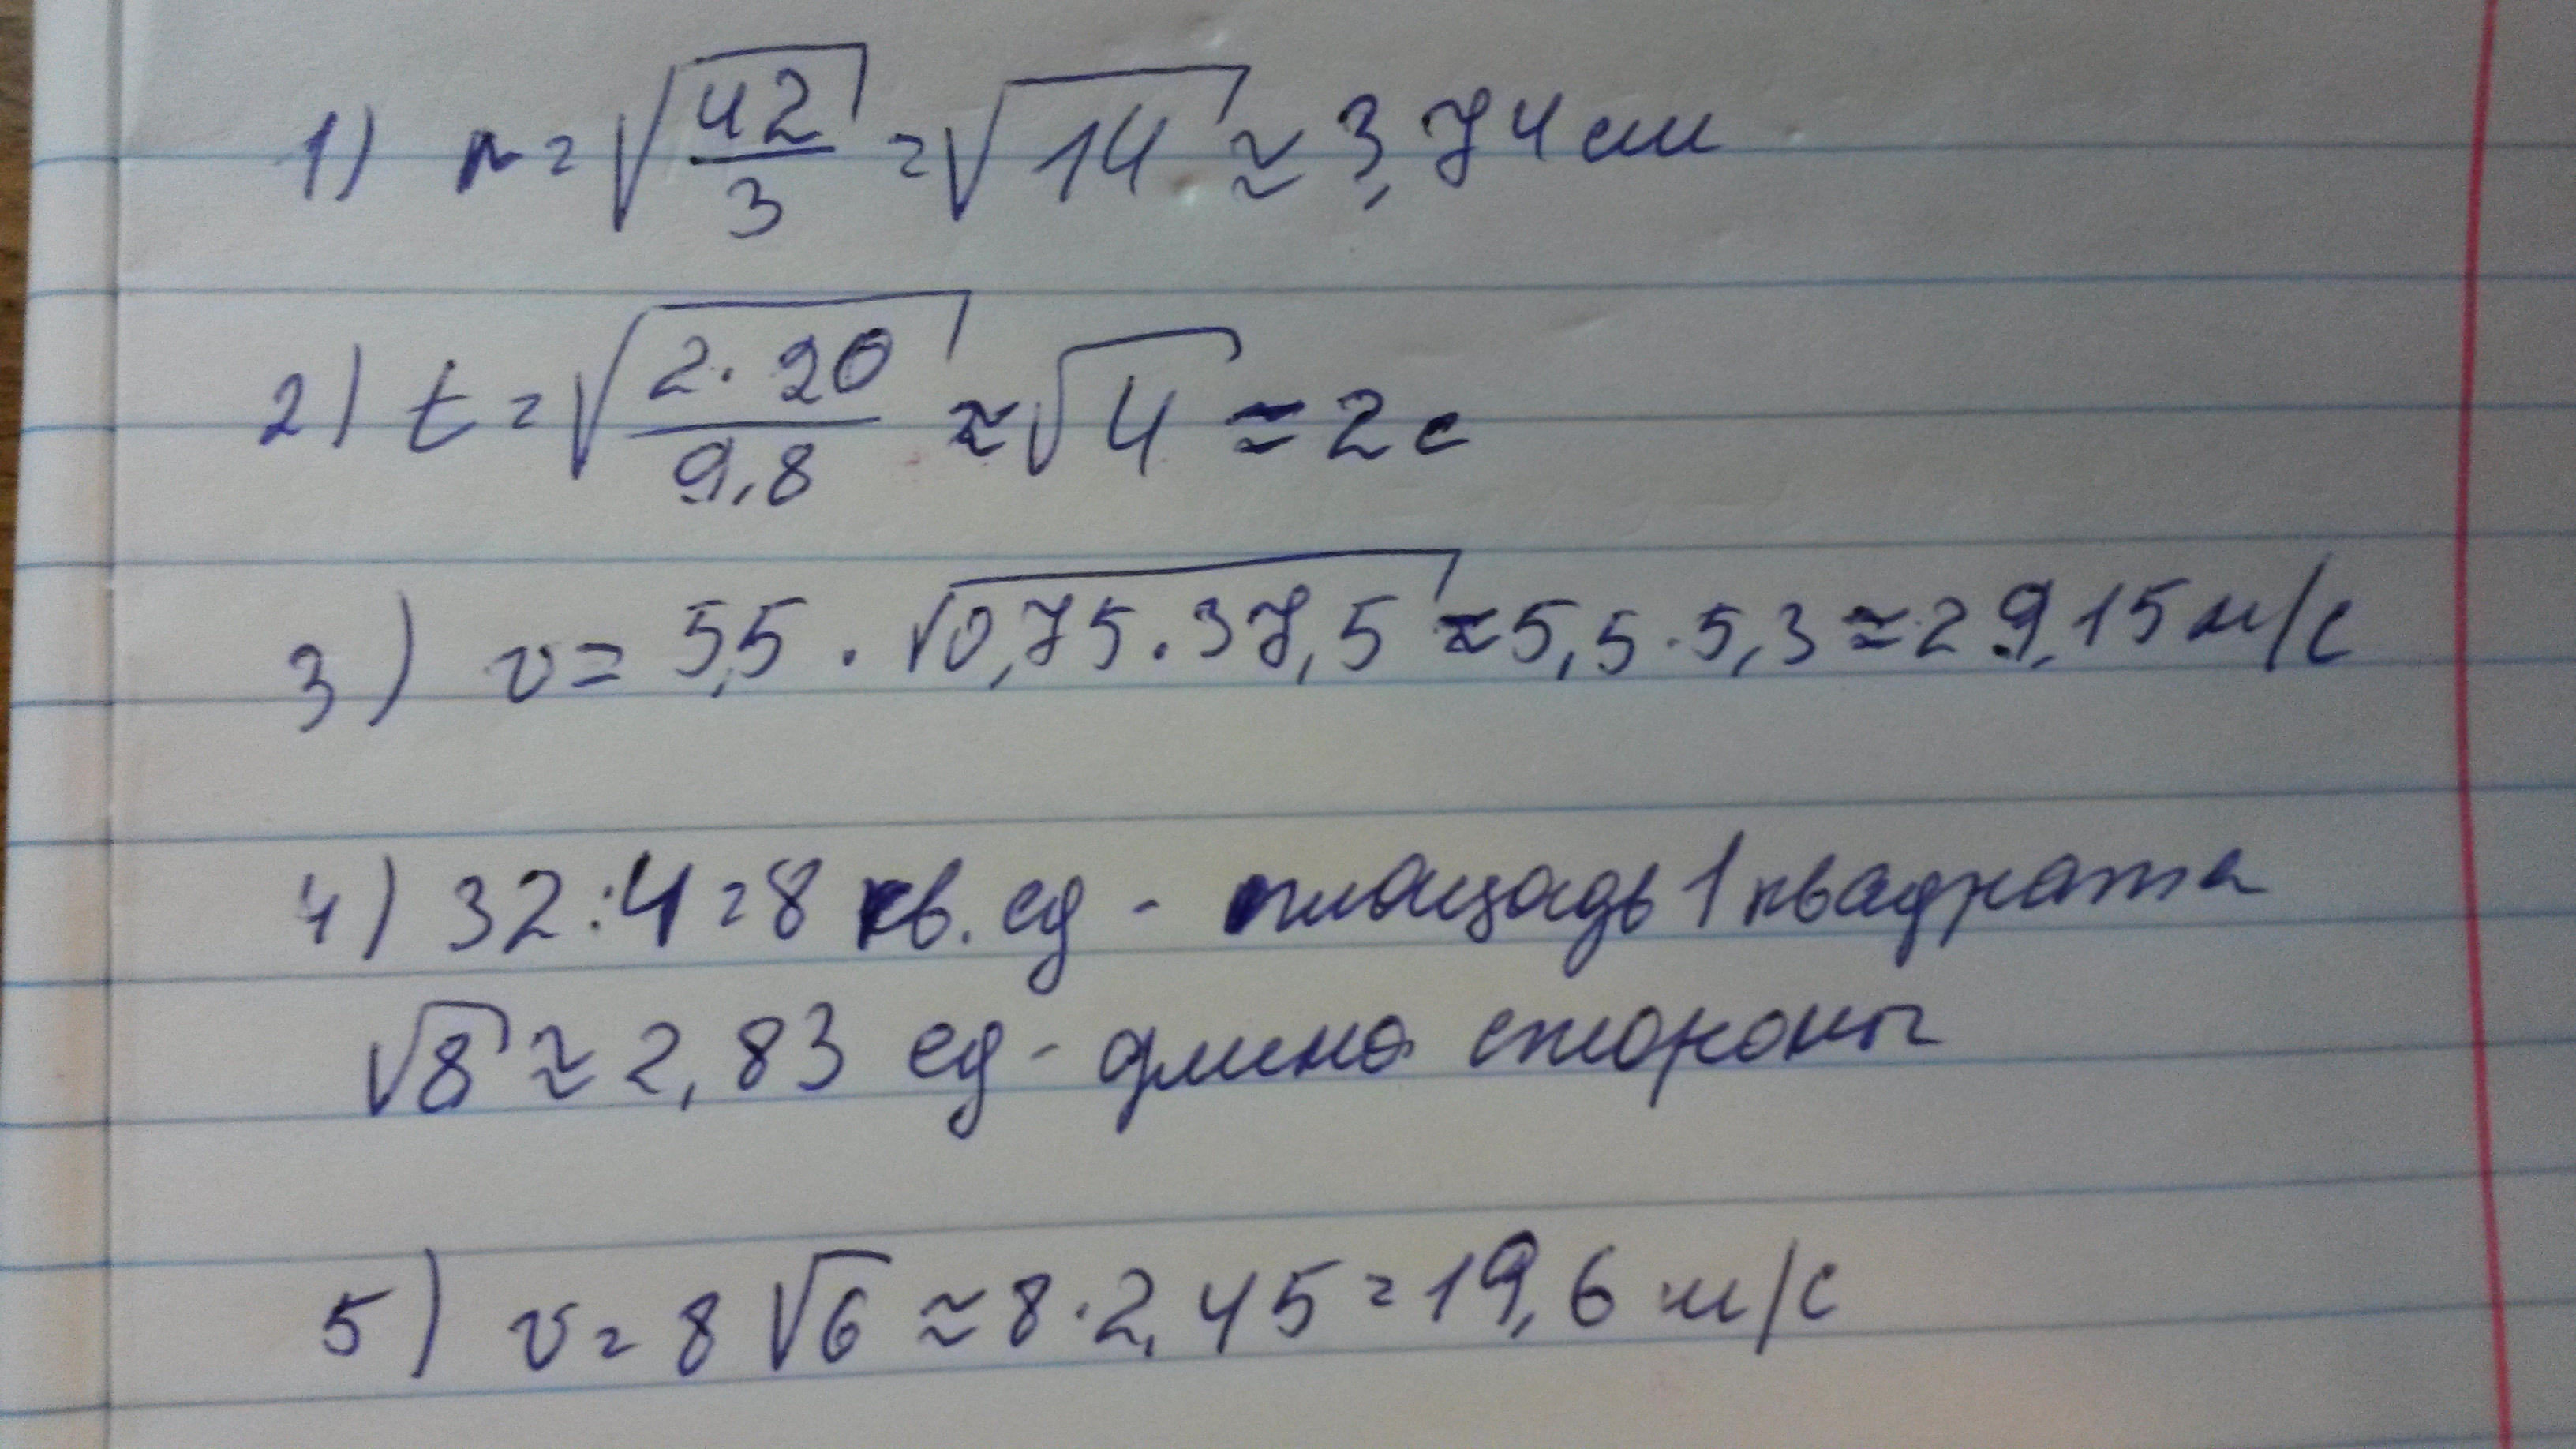 1) r = √(42/3) = √14 ≈ 3,74 см
2) t = √(2·20/9,8) ≈ √4 ≈ 2 с
3) v = 5,5 · √(0,75·37,5) ≈ 5,5·5,3 ≈ 29,15 м/с
4) 32:4=8 кв. ед - площадь 1 квадрата
√8 ≈ 2,83 ед - длина стороны
5) v = 8√6 ≈ 8·2,45 = 19,6 м/с